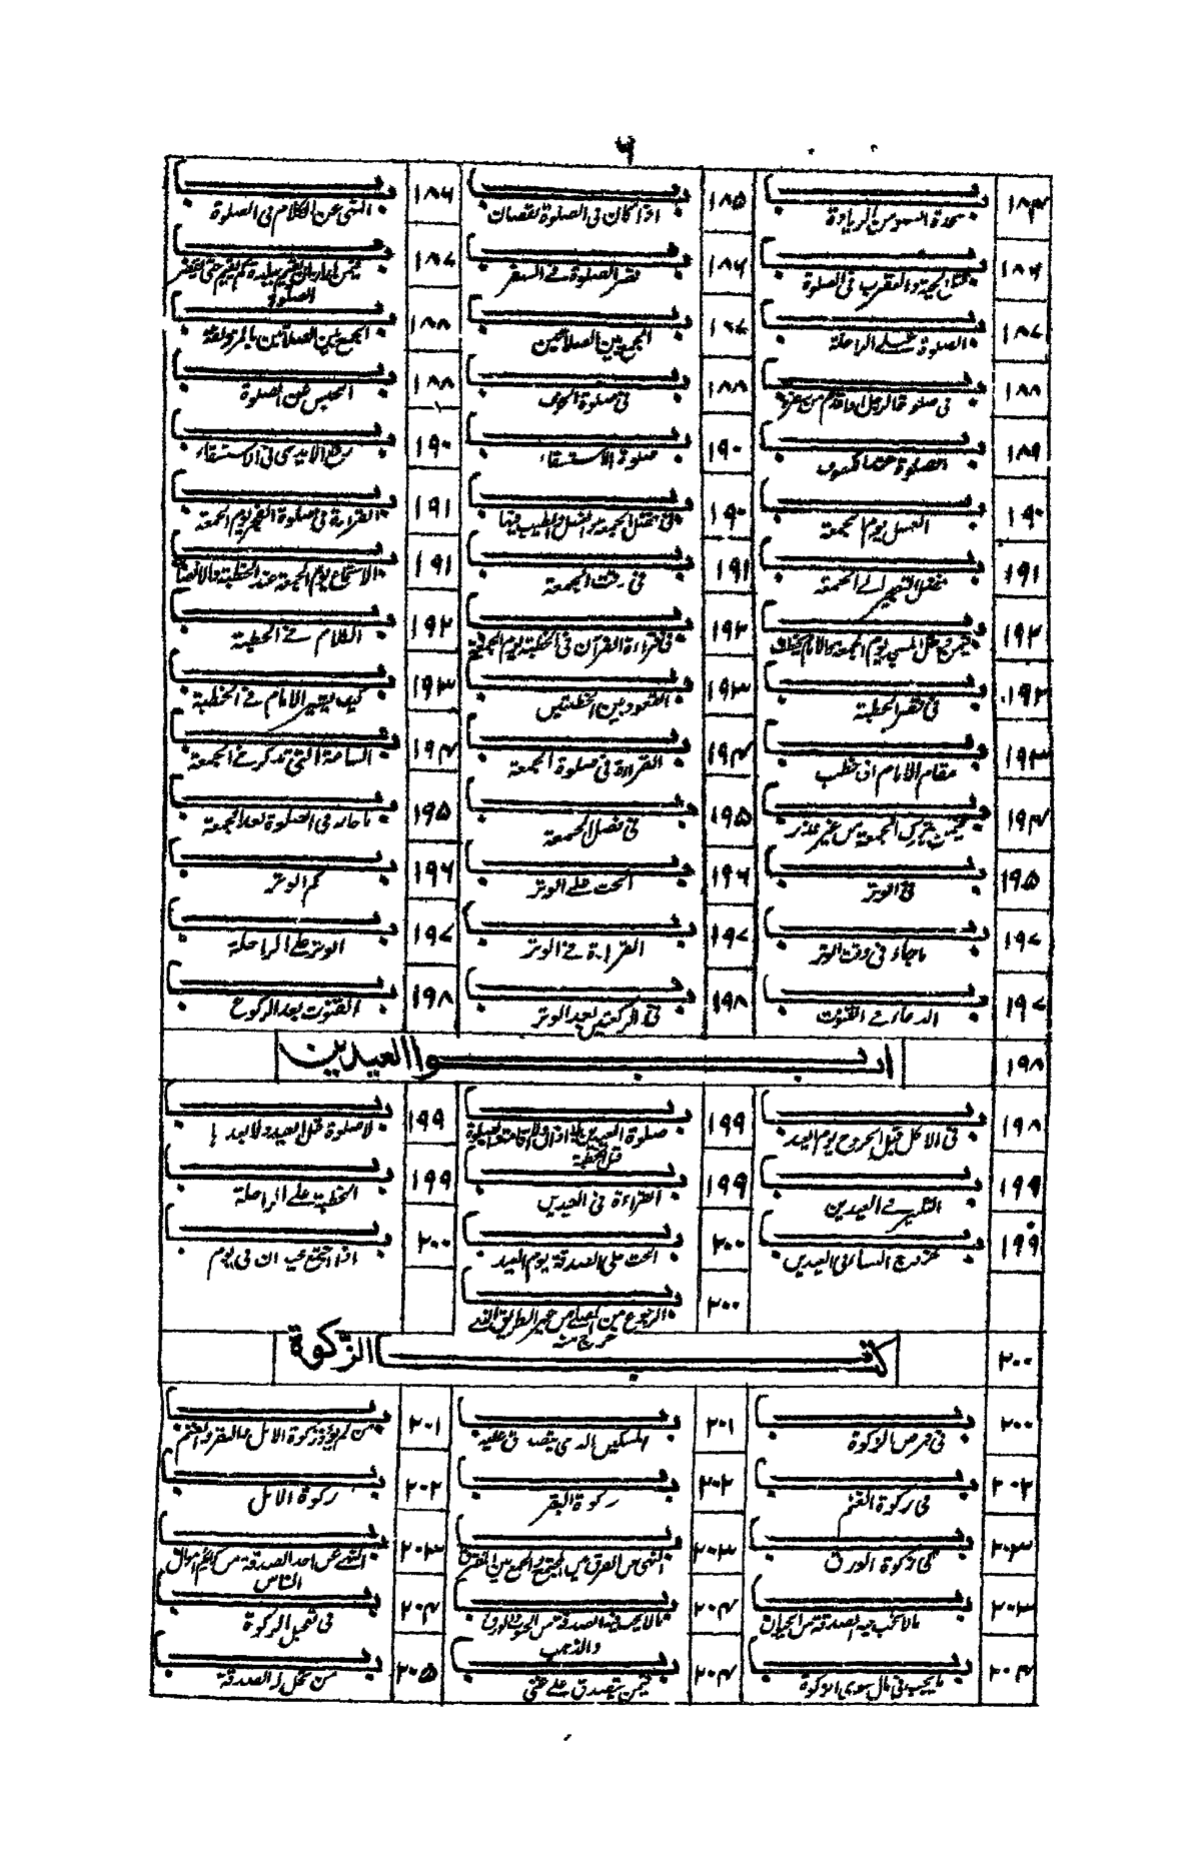 ٦
١٨٣ باب سجدة السهو من الزيادة
١٨٥ باب اذا كان فى الصلوة نقصان
١٨٦ باب النهى عن الكلام فى الصلوة
١٨٦ باب قتل الحية والعقرب فى الصلوة
١٨٦ باب قصر الصلوة فى السفر
١٨٧ باب فيمن اراد ان يقيم ببلدة كم يقيم حتى يقصر الصلوة
١٨٧ باب الصلوة على الراحلة
١٨٧ باب الجمع بين الصلاتين
١٨٨ باب الجمع بين الصلاتين بالمزدلفة
١٨٨ باب فى صلوة الرجل اذا قدم من سفره
١٨٨ باب فى صلوة الخوف
١٨٨ باب الحبس عن الصلوة
١٨٩ باب الصلوة عند الكسوف
١٩٠ باب صلوة الاستسقاء
١٩٠ باب رفع الايدى فى الاستسقاء
١٩٠ باب الغسل يوم الجمعة
١٩٠ باب فى فضل الجمعة والغسل والطيب فيها
١٩١ باب القراءة فى صلوة الفجر يوم الجمعة
١٩١ باب فضل التهجير الى الجمعة
١٩١ باب فى وقت الجمعة
١٩١ باب الاستماع يوم الجمعة عند الخطبة والانصات
١٩٢ باب فيمن دخل المسجد يوم الجمعة والامام يخطب
١٩٢ باب فى قراءة القرآن فى الخطبة يوم الجمعة
١٩٢ باب الكلام فى الخطبة
١٩٢ باب فى قصر الخطبة
١٩٣ باب القعود بين الخطبتين
١٩٣ باب كيف يشير الامام فى الخطبة
١٩٣ باب مقام الامام اذا خطب
١٩٤ باب القراءة فى صلوة الجمعة
١٩٤ باب الساعة التى تذكر فى الجمعة
١٩٤ باب فيمن يترك الجمعة من غير عذر
١٩٥ باب فى فضل الجمعة
١٩٥ باب ما جاء فى الصلوة بعد الجمعة
١٩٥ باب فى الوتر
١٩٦ باب الحث على الوتر
١٩٦ باب كم الوتر
١٩٧ باب ما جاء فى وقت الوتر
١٩٧ باب القراءة فى الوتر
١٩٧ باب الوتر على الراحلة
١٩٧ باب الدعاء فى القنوت
١٩٨ باب فى الركعتين بعد الوتر
١٩٨ باب القنوت بعد الركوع
١٩٨ ابواب العيدين
١٩٨ باب فى الاكل قبل الخروج يوم العيد
١٩٩ باب صلوة العيدين بلا اذان ولا اقامة والصلوة قبل الخطبة
١٩٩ باب لا صلوة قبل العيد ولا بعدها
١٩٩ باب التكبير فى العيدين
١٩٩ باب القراءة فى العيدين
١٩٩ باب الخطبة على الراحلة
١٩٩ باب خروج النساء فى العيدين
٢٠٠ باب الحث على الصدقة يوم العيد
٢٠٠ باب اذا اجتمع عيدان فى يوم
٢٠٠ باب الرجوع من المصلى من غير الطريق الذى خرج منه
٢٠٠ كتاب الزكوة
٢٠٠ باب فى فرض الزكوة
٢٠١ باب المسكين الذى يتصدق عليه
٢٠١ باب من لم يؤد زكوة الابل والبقر والغنم
٢٠٢ باب فى زكوة الغنم
٢٠٢ باب زكوة البقر
٢٠٢ باب زكوة الابل
٢٠٣ باب فى زكوة الورق
٢٠٣ باب النهى عن الفرق بين المجتمع والجمع بين المتفرق
٢٠٣ باب النهى عن اخذ الصدقة من كرائم اموال الناس
٢٠٣ باب ما لا تجب فيه الصدقة من الحيوان
٢٠٤ باب ما لا يجب فيه الصدقة من الحبوب والورق والذهب
٢٠٤ باب فى تعجيل الزكوة
٢٠٤ باب ما يجب فى مال سوى الزكوة
٢٠٤ باب فيمن يتصدق على غنى
٢٠٥ باب من تحل له الصدقة